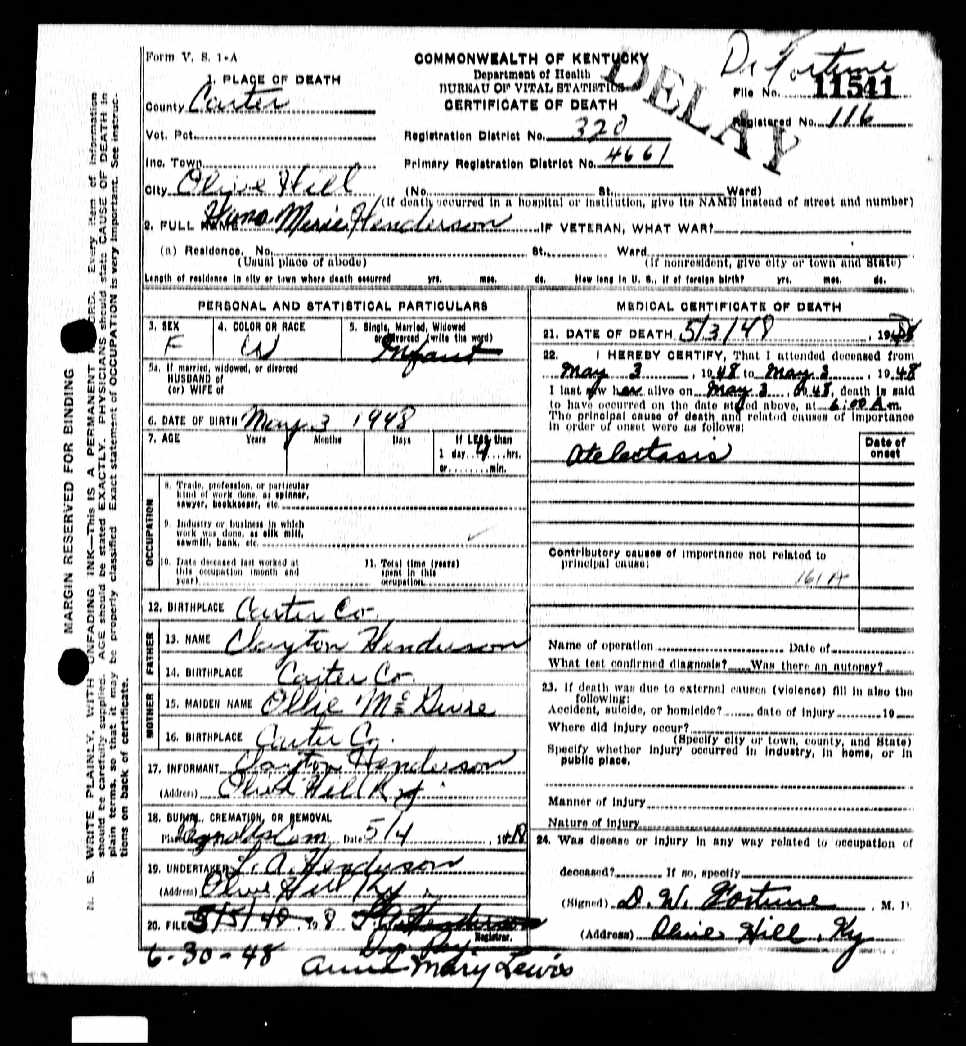 Form V. S. 1-A
COMMONWEALTH OF KENTUCKY
Department of Health
BUREAU OF VITAL STATISTICS
CERTIFICATE OF DEATH
DELAY
Dr Fortune
File No. 11541
Registered No. 116
1. PLACE OF DEATH
County Carter
Vot. Pct.
Inc. Town
City Olive Hill
Registration District No. 320
Primary Registration District No. 4661
(No. St. Ward)
(If death occurred in a hospital or institution, give its NAME instead of street and number)
2. FULL NAME Henderson IF VETERAN, WHAT WAR?
(a) Residence, No. St., Ward
(Usual place of abode) (If nonresident, give city or town and State)
Length of residence in city or town where death occurred yrs. mos. ds. How long in U. S., if of foreign birth? yrs. mos. ds.
PERSONAL AND STATISTICAL PARTICULARS
3. SEX
F
4. COLOR OR RACE
W
5. Single, Married, Widowed
or Divorced (write the word)
Infant
5a. If married, widowed, or divorced
HUSBAND of
(or) WIFE of
6. DATE OF BIRTH May 3 1948
7. AGE Years Months Days If LESS than
1 day 4 hrs.
or min.
OCCUPATION
8. Trade, profession, or particular
kind of work done, as spinner,
sawyer, bookkeeper, etc.
9. Industry or business in which
work was done, as silk mill,
sawmill, bank, etc.
10. Date deceased last worked at
this occupation (month and
year)
11. Total time (years)
spent in this
occupation
12. BIRTHPLACE Carter Co
FATHER
13. NAME Clayton Henderson
14. BIRTHPLACE Carter Co
MOTHER
15. MAIDEN NAME Ollie
16. BIRTHPLACE Carter Co.
17. INFORMANT Clayton Henderson
(Address) Olive Hill Ky
18. BURIAL, CREMATION, OR REMOVAL
Place Reynolds Cem Date 5/4, 1948
19. UNDERTAKER L. A. Henderson
(Address) Olive Hill Ky.
20. FILED 5/5/48
Registrar.
6-30-48
Mary Lewis
MEDICAL CERTIFICATE OF DEATH
21. DATE OF DEATH 5/3/48, 1948
22. I HEREBY CERTIFY, That I attended deceased from
May 3, 1948 to May 3, 1948
I last saw her alive on May 3 48, death is said
to have occurred on the date stated above, at 6:00 A.m.
The principal cause of death and related causes of importance
in order of onset were as follows:
Date of
onset
Atelectasis
Contributory causes of importance not related to
principal cause:
161A
Name of operation Date of
What test confirmed diagnosis? Was there an autopsy?
23. If death was due to external causes (violence) fill in also the
following:
Accident, suicide, or homicide? date of injury 19
Where did injury occur?
(Specify city or town, county, and State)
Specify whether injury occurred in industry, in home, or in
public place.
Manner of injury
Nature of injury
24. Was disease or injury in any way related to occupation of
deceased? If so, specify
(Signed) D. W. Fortune, M. D.
(Address) Olive Hill, Ky
MARGIN RESERVED FOR BINDING
N. B. WRITE PLAINLY, WITH UNFADING INK—This IS A PERMANENT RECORD. Every item of information
should be carefully supplied. AGE should be stated EXACTLY. PHYSICIANS should state CAUSE OF DEATH in
plain terms, so that it may be properly classified. Exact statement of OCCUPATION is very important. See instruc-
tions on back of certificate.